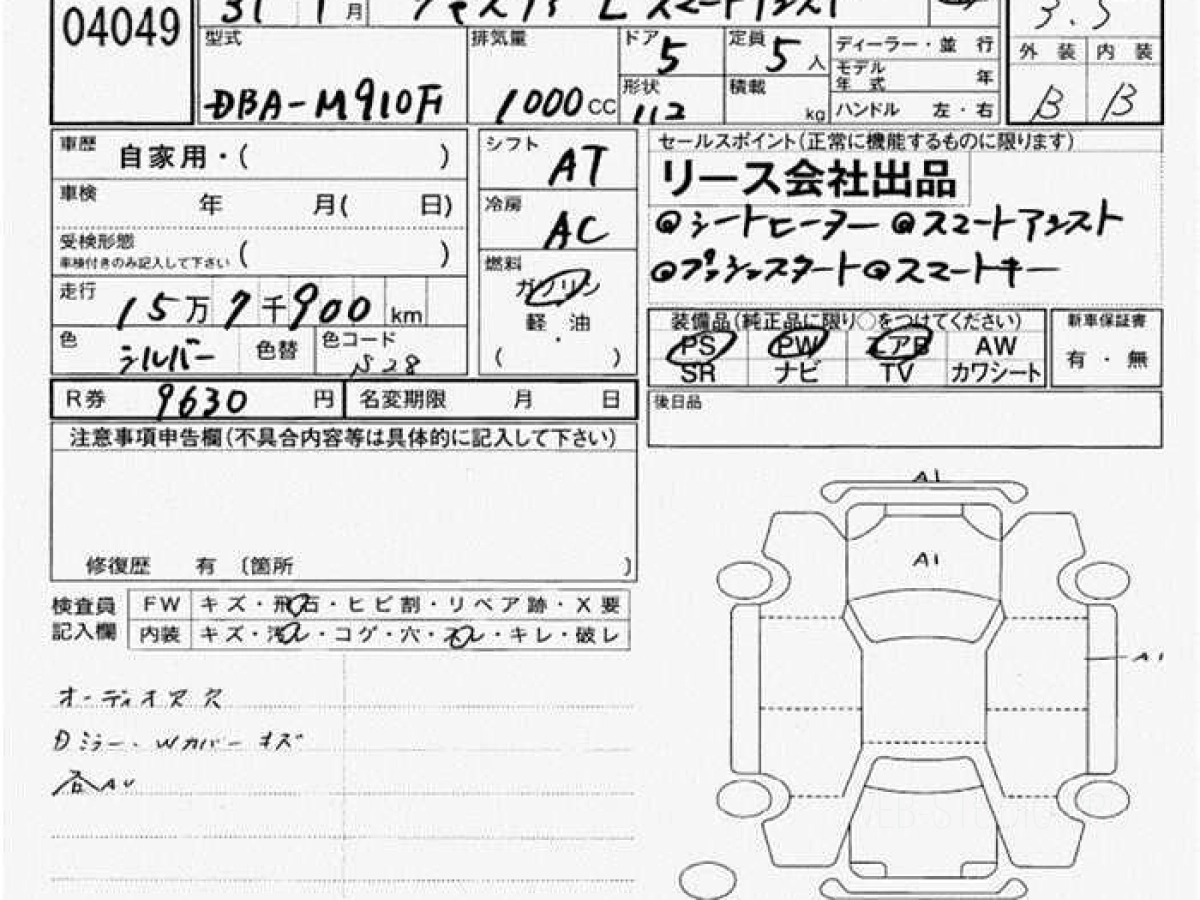 04049
31 1 月
ジャスティ L スマートアシスト
3.5
型式 排気量 ドア 5 定員 5 人 ディーラー・並 行 外 装 内 装
DBA-M910F 1000 CC 形状 112 積載 kg モデル年式 年
ハンドル 左・右 B B
車歴 自家用・( )
車検 年 月( 日)
受検形態 ( )
車検付きのみ記入して下さい
走行 15 万 7 千 900 km
色 シルバー 色替 色コード N28
シフト AT
冷房 AC
燃料
ガソリン
軽・油
( )
セールスポイント(正常に機能するものに限ります)
リース会社出品
◎シートヒーター ◎スマートアシスト
◎プッシュスタート ◎スマートキー
装備品(純正品に限り○をつけてください) 新車保証書
PS PW エアB AW 有・無
SR ナビ TV カワシート
R券 9630 円 名変期限 月 日
後日品
注意事項申告欄(不具合内容等は具体的に記入して下さい)
修復歴 有 〔箇所 〕
検査員 FW キズ・飛石・ヒビ割・リペア跡・X要
記入欄 内装 キズ・汚レ・コゲ・穴・スレ・キレ・破レ
オーディオスス欠
Dミラー・Wカバーキズ
各AU
A1
A1
A1